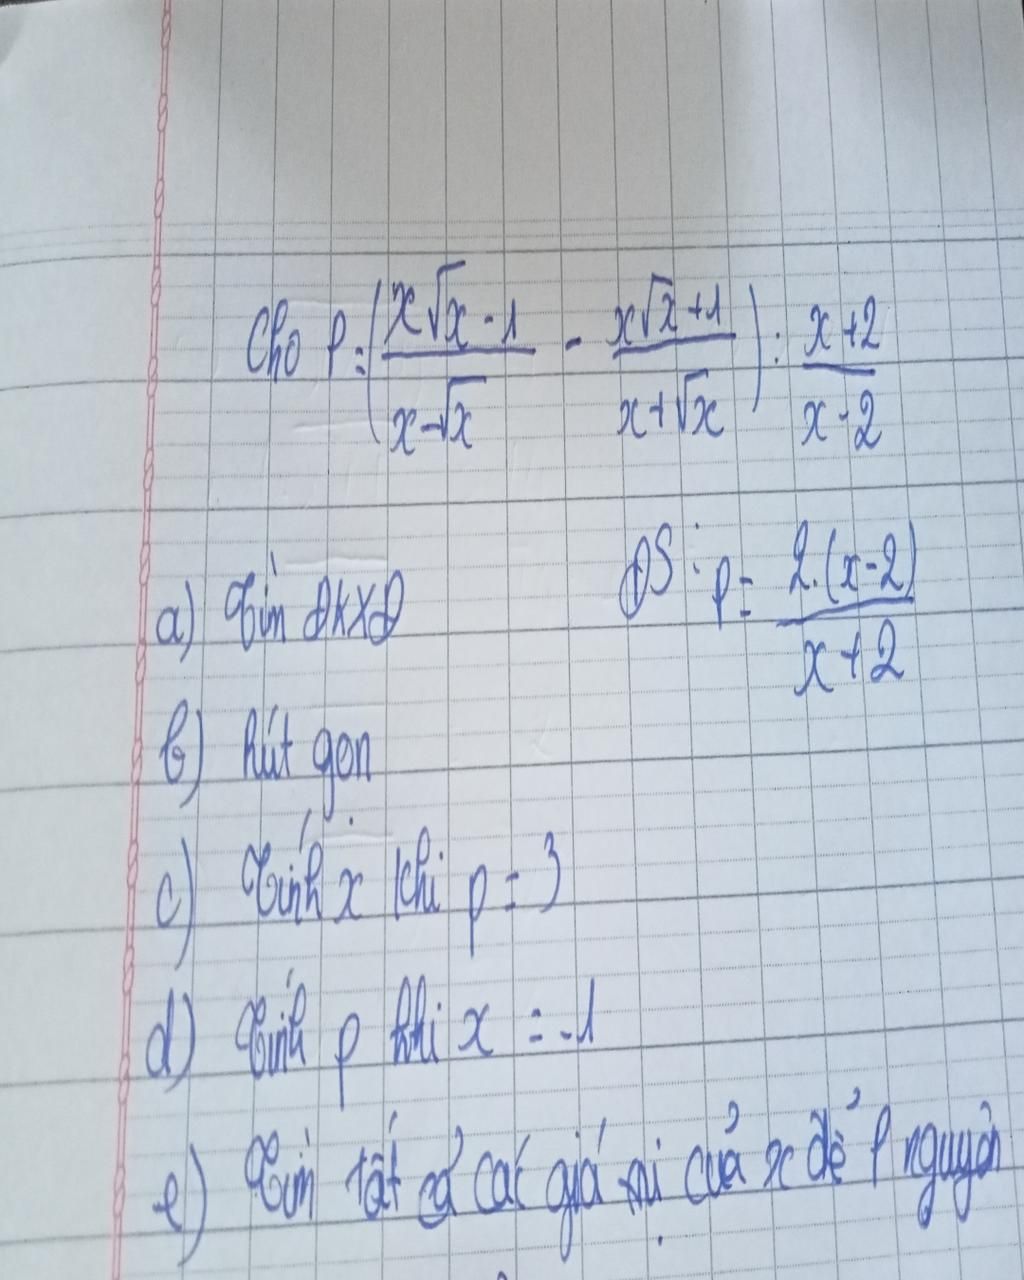 Cho P = (x√x - 1 / x - √x - x√x + 1 / x + √x) : x + 2 / x - 2
a) Tìm ĐKXĐ ĐS : P = 2.(x - 2) / x + 2
b) Rút gọn
c) Tính x khi P = 3
d) Tính P khi x = -1
e) Tìm tất cả các giá trị của x để P nguyên